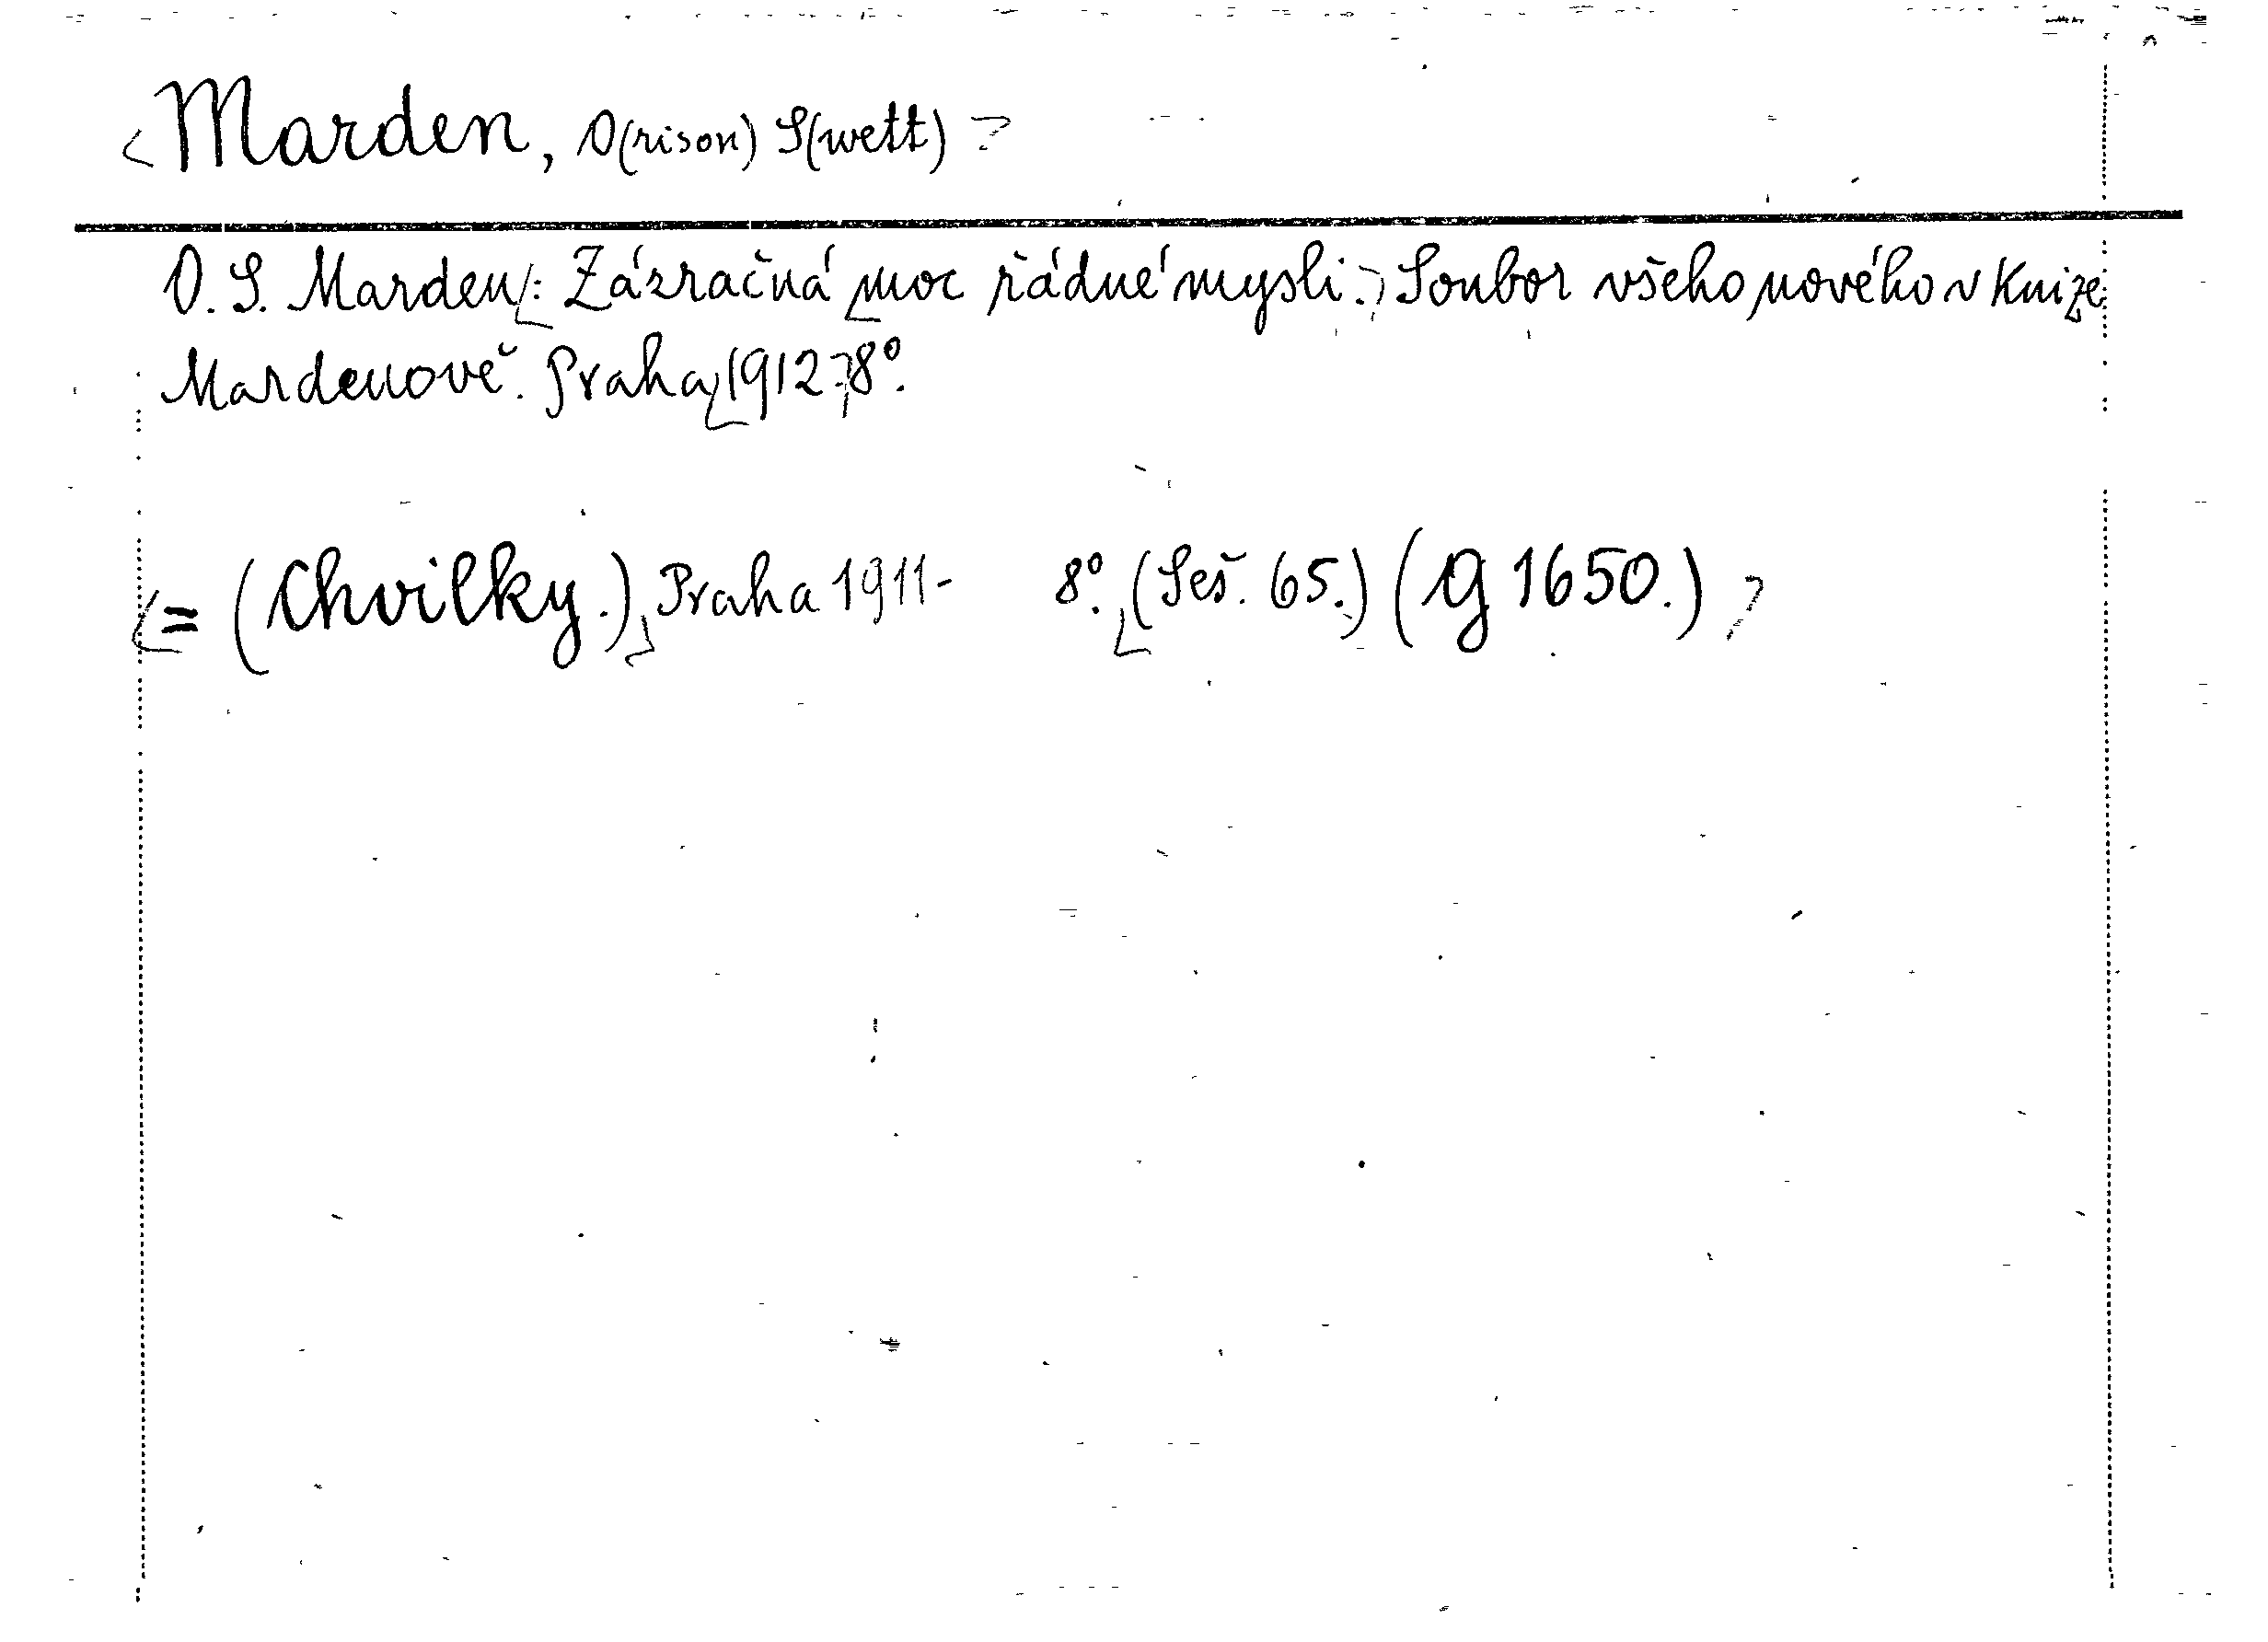 Marden, O(rison) S(wett)
O. S. Marden: Zázračná moc řádné mysli. Soubor všeho nového v knize
Mardenově. Praha 1912. 8°.
= (Chvilky.) Praha 1911- 8°. (Seš. 65.) (G 1650.)